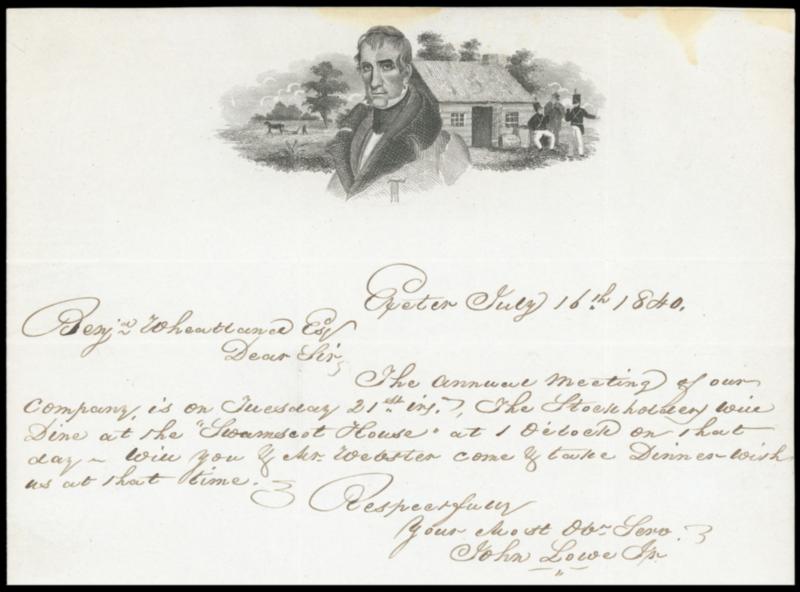 Exeter July 16th 1840.
Benja Wheatland Esq
Dear Sir,
The annual meeting of our
Company, is on Tuesday 21st ins., The Stockholders will
Dine at the "Swamscot House" at 1 O'clock on that
day – Will you & Mr. Webster come & take Dinner with
us at that time.
Respectfully
Your Most Obt Serv.
John Lowe Jr